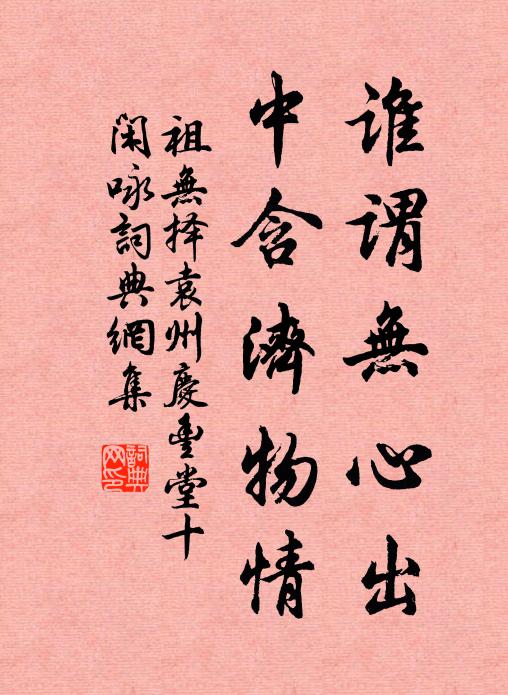 誰謂無心出
中含濟物情
祖無择袁州慶豊堂十
閑咏詞典網集
詞典
网印